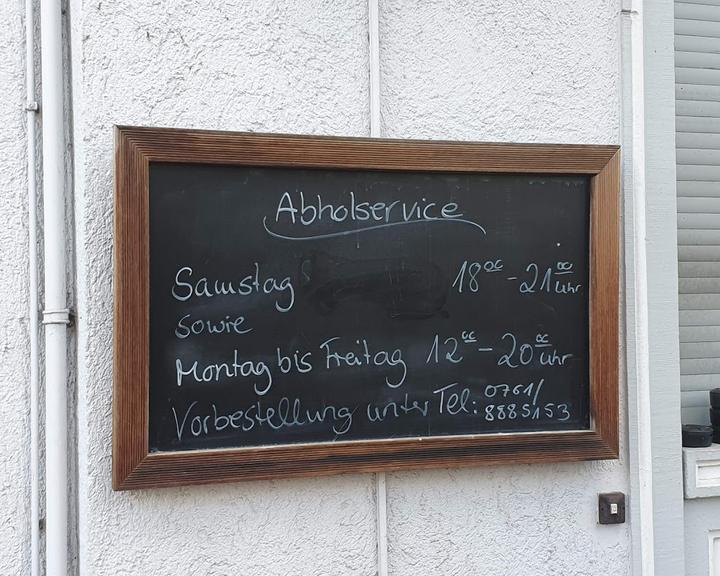 Abholservice
Samstag 18⁰⁰ - 21⁰⁰ Uhr
sowie
Montag bis Freitag 12⁰⁰ - 20⁰⁰ Uhr
Vorbestellung unter Tel: 0761/
8885153